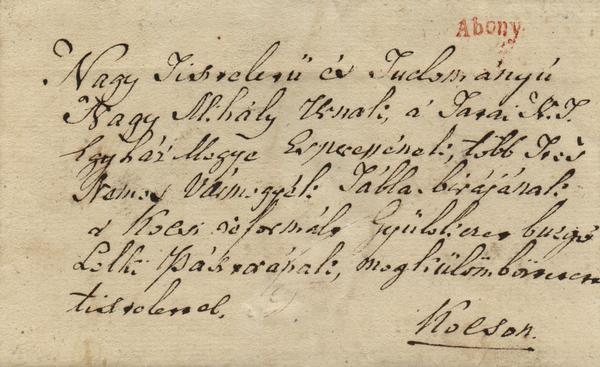 Abony
Nagy Tiszteletü és Tudományú
Nagy Mihály Urnak, a Tatai N. T.
Egyház Megye Esperessének, több Tets
Nemes Vármegyék Tábla birájának
a Kocsi reformált Gyülekezet buzgó
Lelki Pásztorának, megkülömböztetett
tisztelettel.
Kocson.